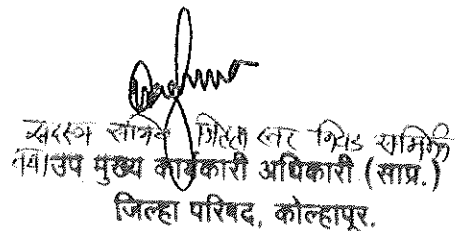 सदस्य सचिव जिल्हा स्तर निवड समिती
तथा उप मुख्य कार्यकारी अधिकारी (साप्र.)
जिल्हा परिषद, कोल्हापूर.